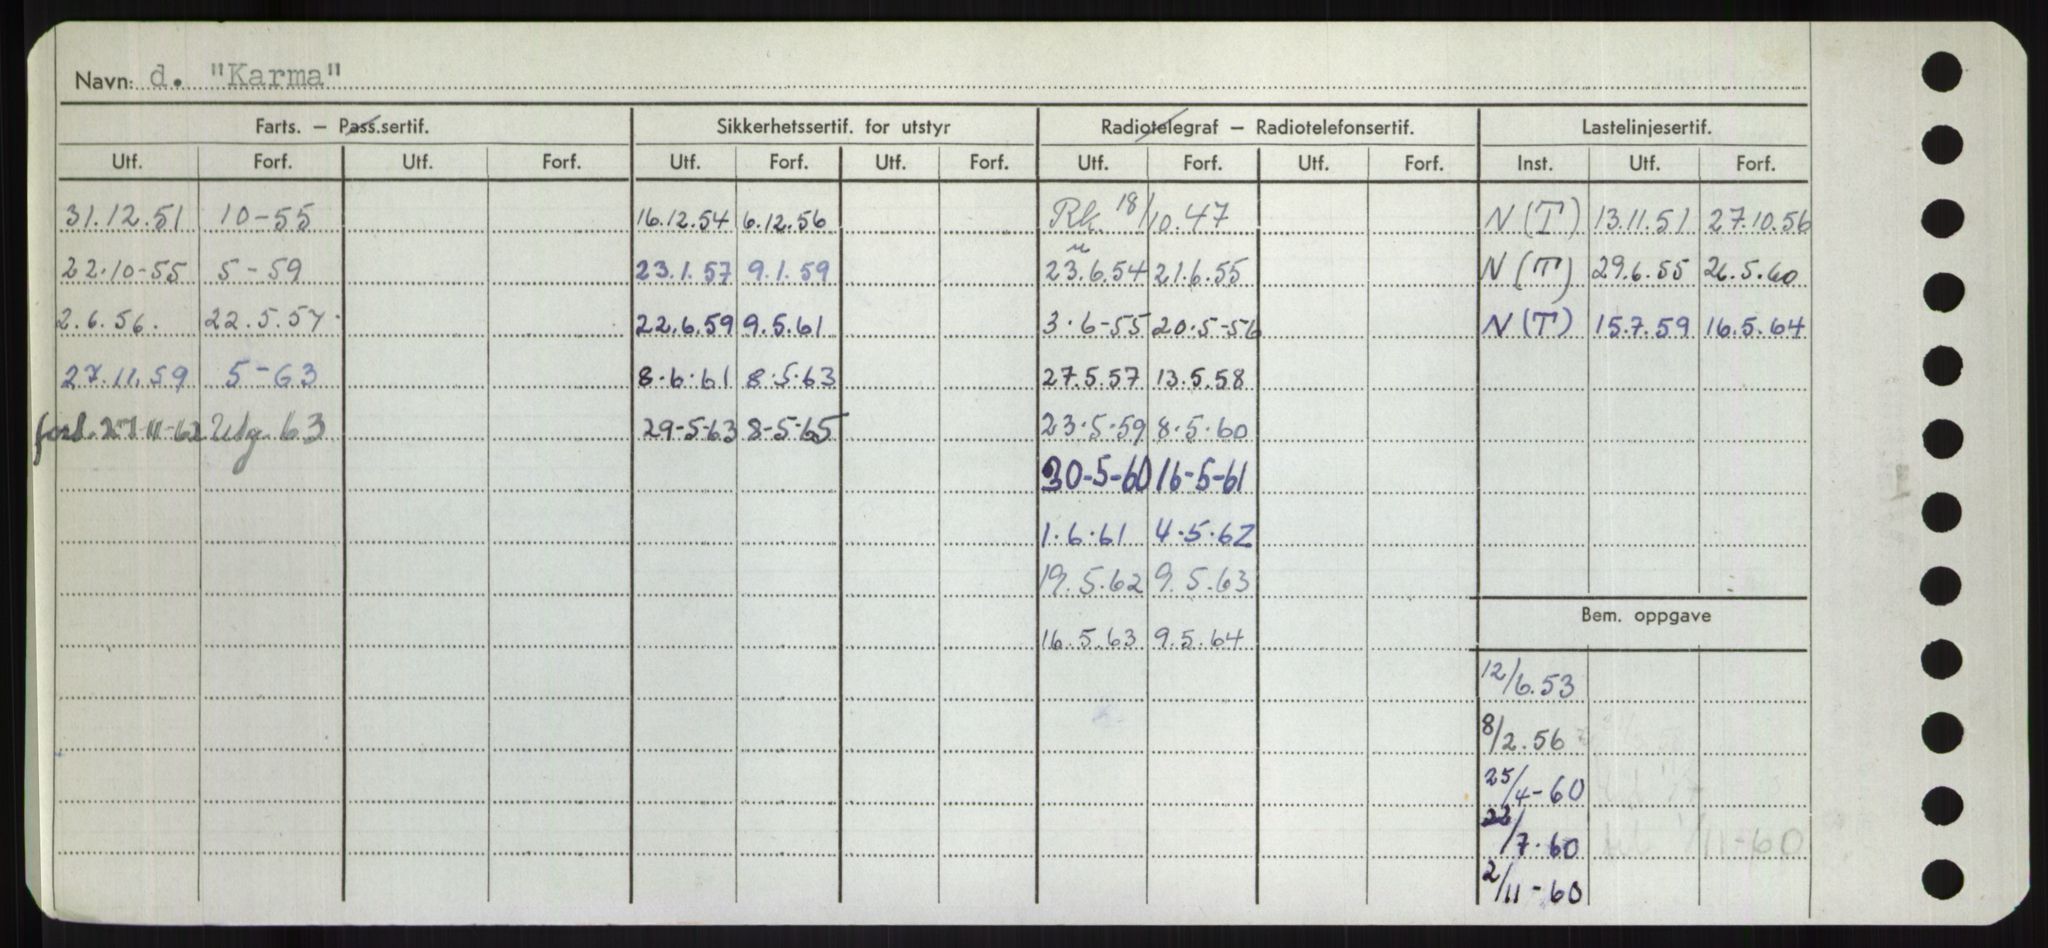 Navn: d. "Karma"
Farts. – Pass.sertif. Sikkerhetssertif. for utstyr Radiotelegraf – Radiotelefonsertif. Lastelinjesertif.
Utf. Forf. Utf. Forf. Utf. Forf. Utf. Forf. Utf. Forf. Utf. Forf. Inst. Utf. Forf.
31.12.51 10-55 16.12.54 6.12.56 Rk. 18/10.47 N(T) 13.11.51 27.10.56
22.10-55 5-59 23.1.57 9.1.59 23.6.54 21.6.55 N(T) 29.6.55 26.5.60
2.6.56. 22.5.57. 22.6.59 9.5.61 3.6-55 20.5-56 N(T) 15.7.59 16.5.64
27.11.59 5-63 8.6.61 8.5.63 27.5.57 13.5.58
forl. 27-11-62 Utg. 63 29-5-63 8-5-65 23.5.59 8.5.60
30-5-60 16-5-61
1.6.61 4.5.62
19.5.62 9.5.63
Bem. oppgave
16.5.63 9.5.64
12/6.53
8/2.56
25/4-60
22/7.60 /11-60
2/11-60